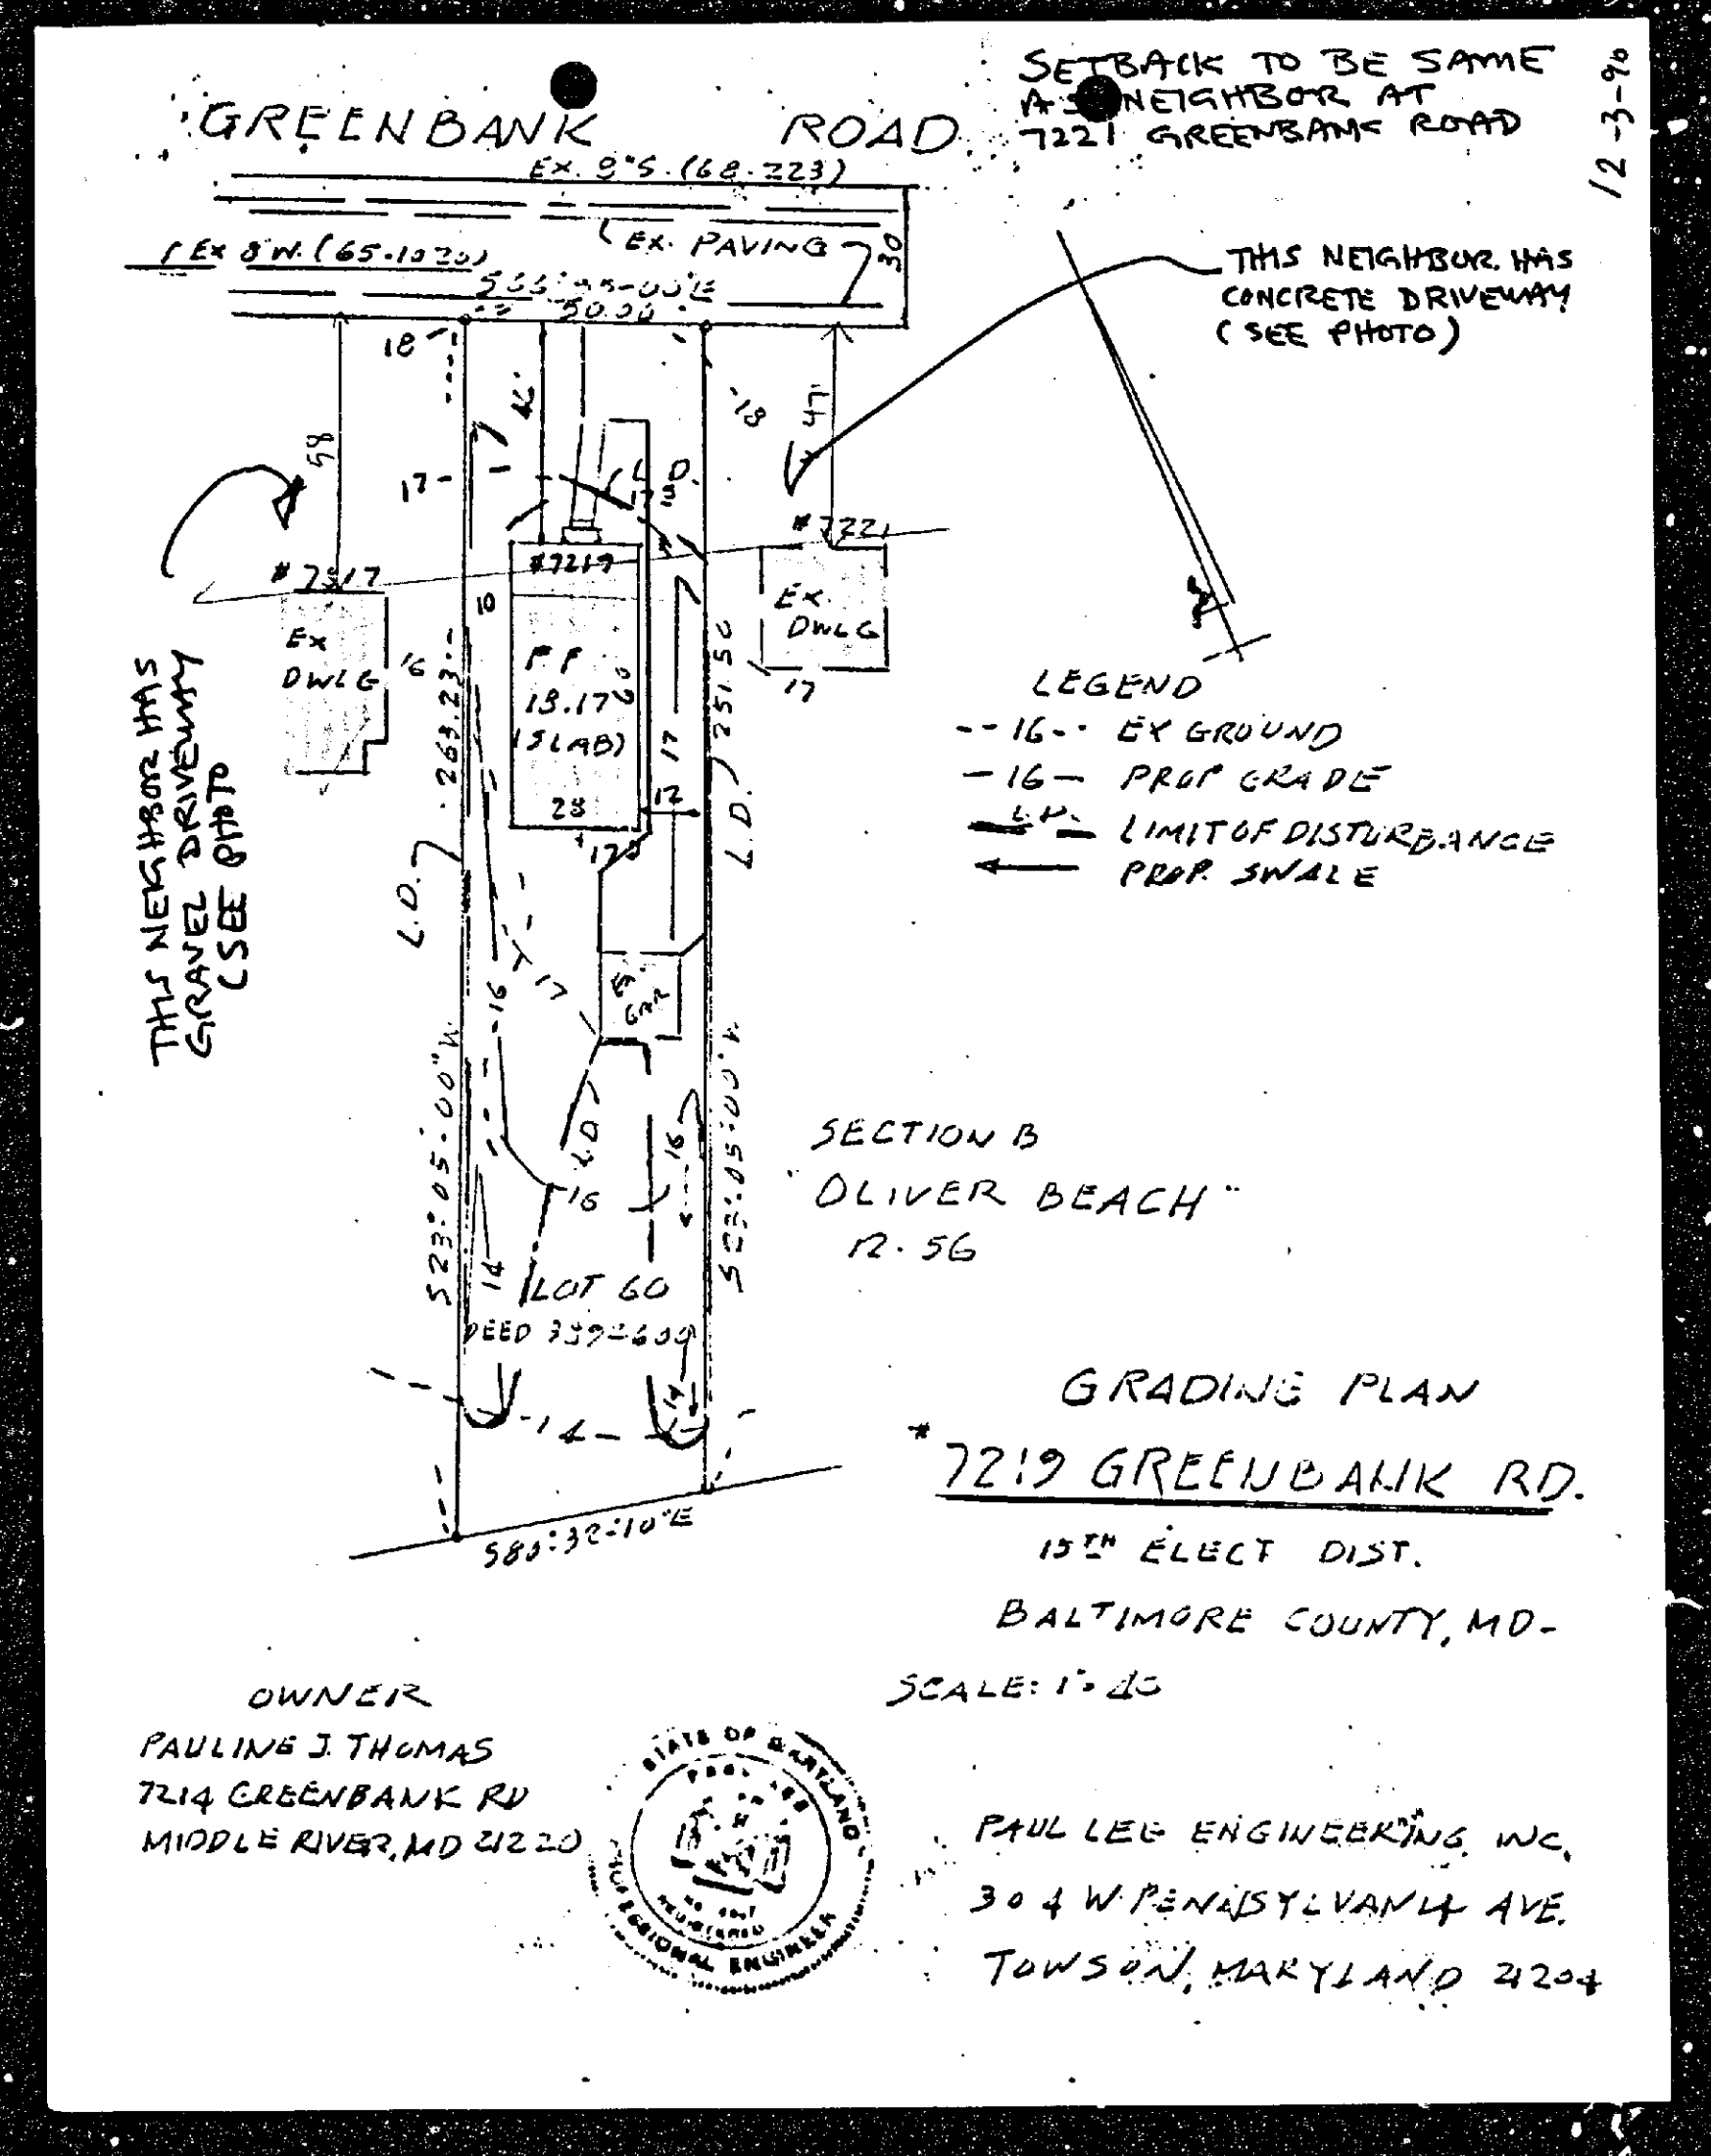 SETBACK TO BE SAME
AS NEIGHBOR AT
7221 GREENBANK ROAD
12-3-90
GREENBANK ROAD
EX. 8"S. (68-223)
EX 8"W. (65-1020)
EX. PAVING
30
50.00
THIS NEIGHBOR HAS
CONCRETE DRIVEWAY
(SEE PHOTO)
18
18
58
47'
17
L.D.
#7217
#7219
#7221
EX
DWLG
EX.
DWLG
10
16
FF
18.17
(SLAB)
60
28
12
17
17
263.23
251.50
L.D.
L.D.
THIS NEIGHBOR HAS
GRAVEL DRIVEWAY
(SEE PHOTO
LEGEND
--16-- EX GROUND
-16- PROP GRADE
L.D. LIMIT OF DISTURBANCE
PROP. SWALE
17
16
EX.
GAR
S23°-05'-00"W
S23°-05'-00"W
L.D.
16
16
14
LOT 60
DEED
14
-14-
SECTION B
"OLIVER BEACH"
12.56
GRADING PLAN
#7219 GREENBANK RD.
15TH ELECT DIST.
BALTIMORE COUNTY, MD-
SCALE: 1"=40
OWNER
PAULINE J. THOMAS
7214 GREENBANK RD
MIDDLE RIVER, MD 21220
STATE OF MARYLAND
PAUL LEE
REGISTERED
PROFESSIONAL ENGINEER
PAUL LEE ENGINEERING INC.
304 W. PENNSYLVANIA AVE.
TOWSON, MARYLAND 21204